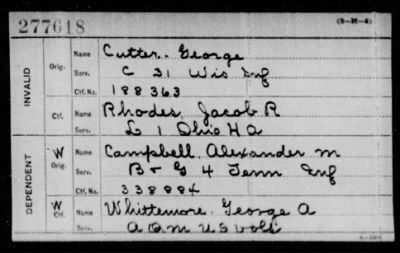 277618 (3-21-4)
INVALID
Orig. Name Cutter. George
Serv. C 31 Wis Inf
Ctf. No. 188363
Ctf. Name Rhodes, Jacob R
Serv. L 1 Ohio H A
DEPENDENT
W Orig. Name Campbell, Alexander M
Serv. B & G 4 Tenn Inf
Ctf. No. 338884
W Ctf. Name Whittemore. George A
Serv. A Q M U S Vols